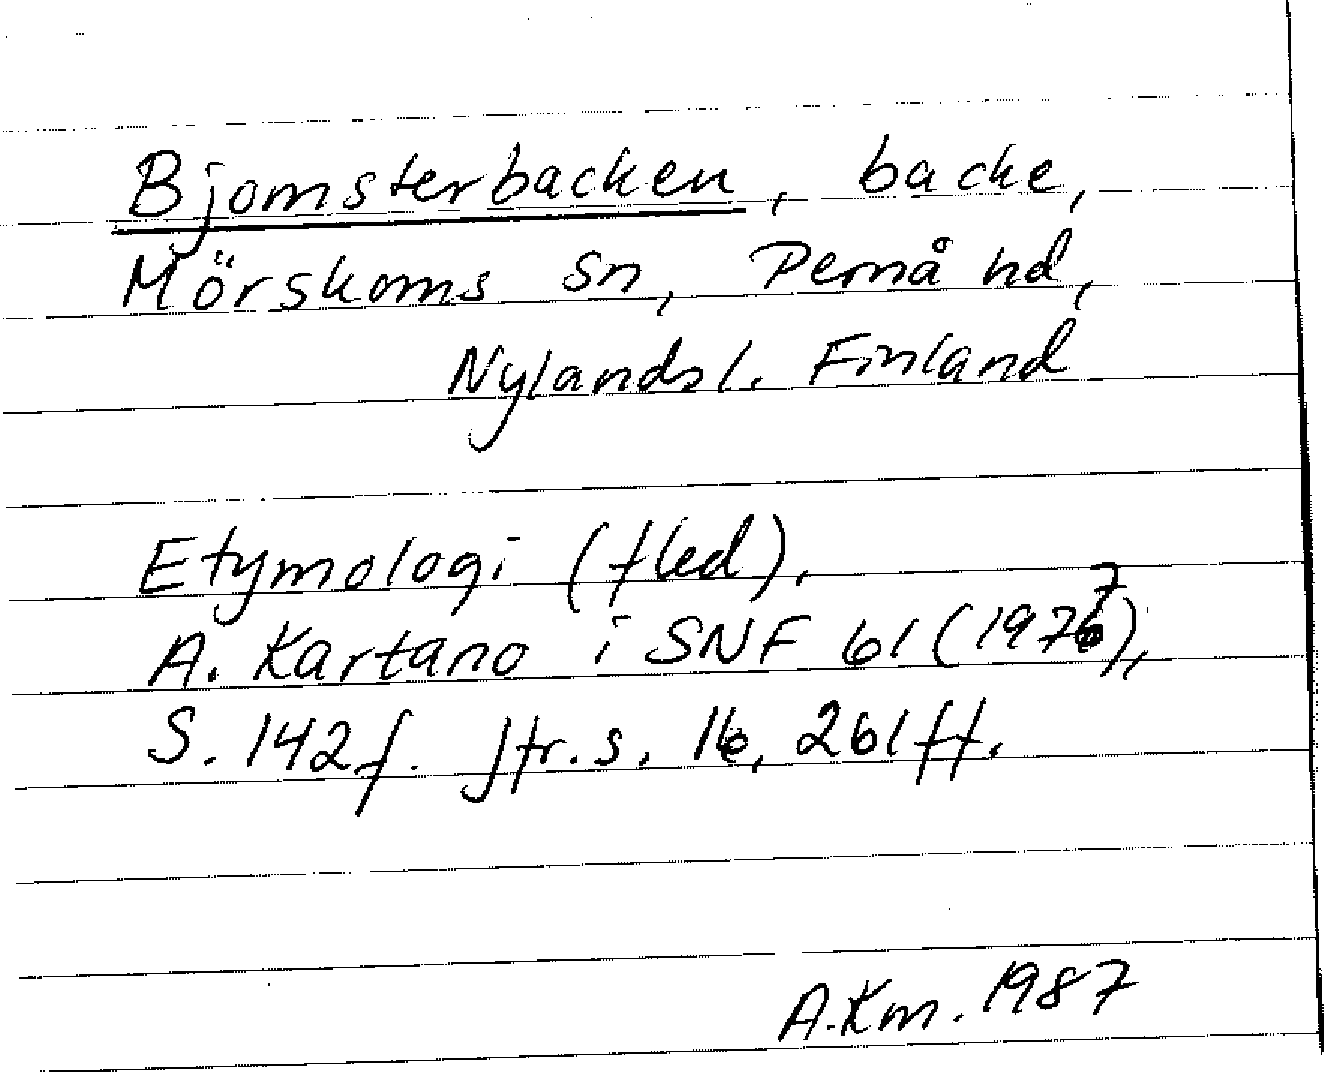 Bjornsterbacken, backe,
Mörskoms sn, Pernå hd,
Nylandsl. Finland
Etymologi (fled).
A. Kartano i SNF 61 (1977),
S. 142f. Jfr. s. 16, 261ff.
A.Km. 1987